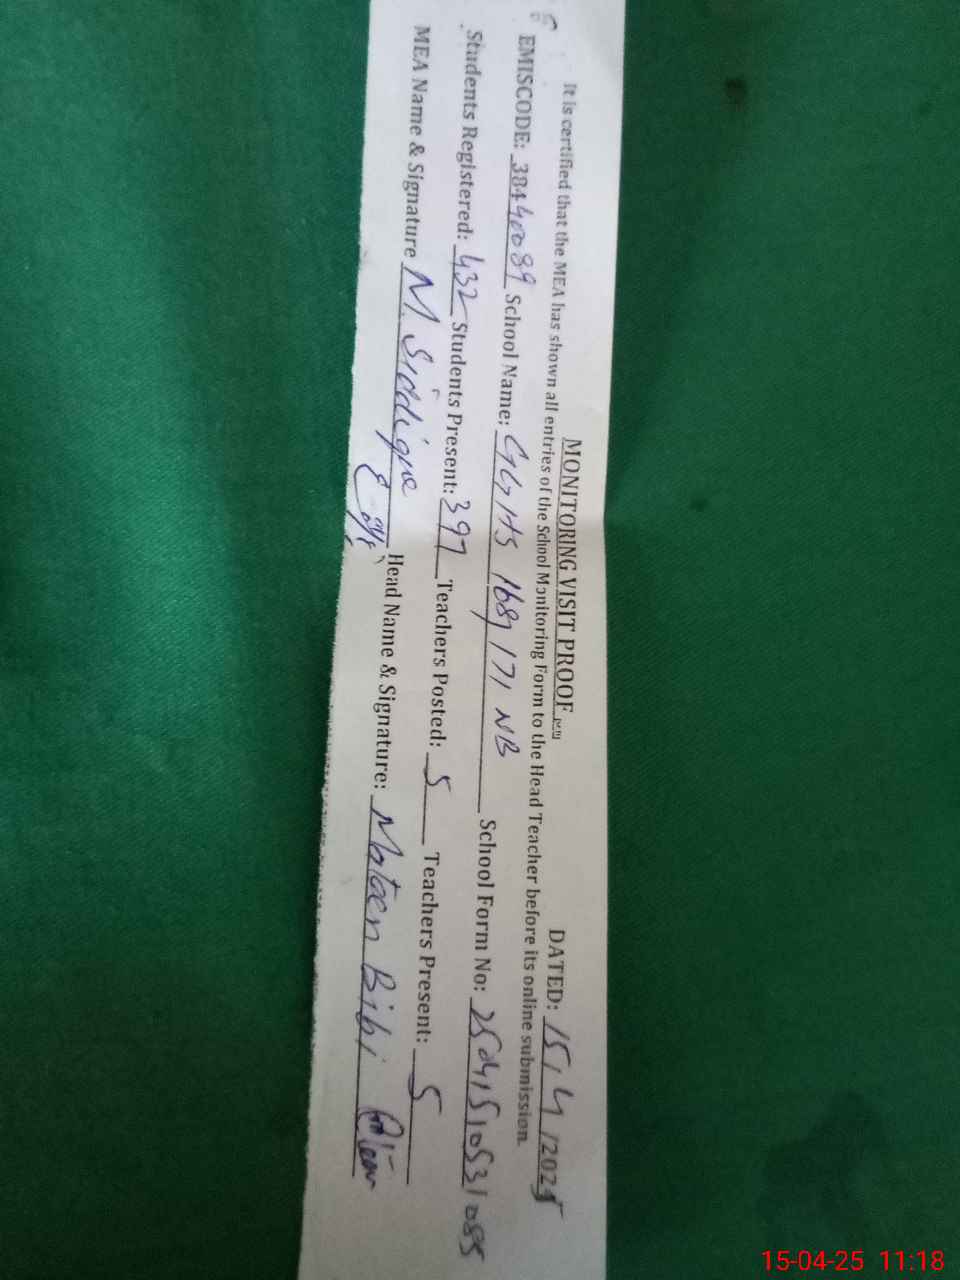 MONITORING VISIT PROOF DATED: 15/4/2025
It is certified that the MEA has shown all entries of the School Monitoring Form to the Head Teacher before its online submission.
EMISCODE: 38440089 School Name: GGHS 168/171 NB School Form No: 25041510531085
Students Registered: 432 Students Present: 397 Teachers Posted: 5 Teachers Present: 5
MEA Name & Signature M. Siddique Head Name & Signature: Mateen Bibi
15-04-25 11:18